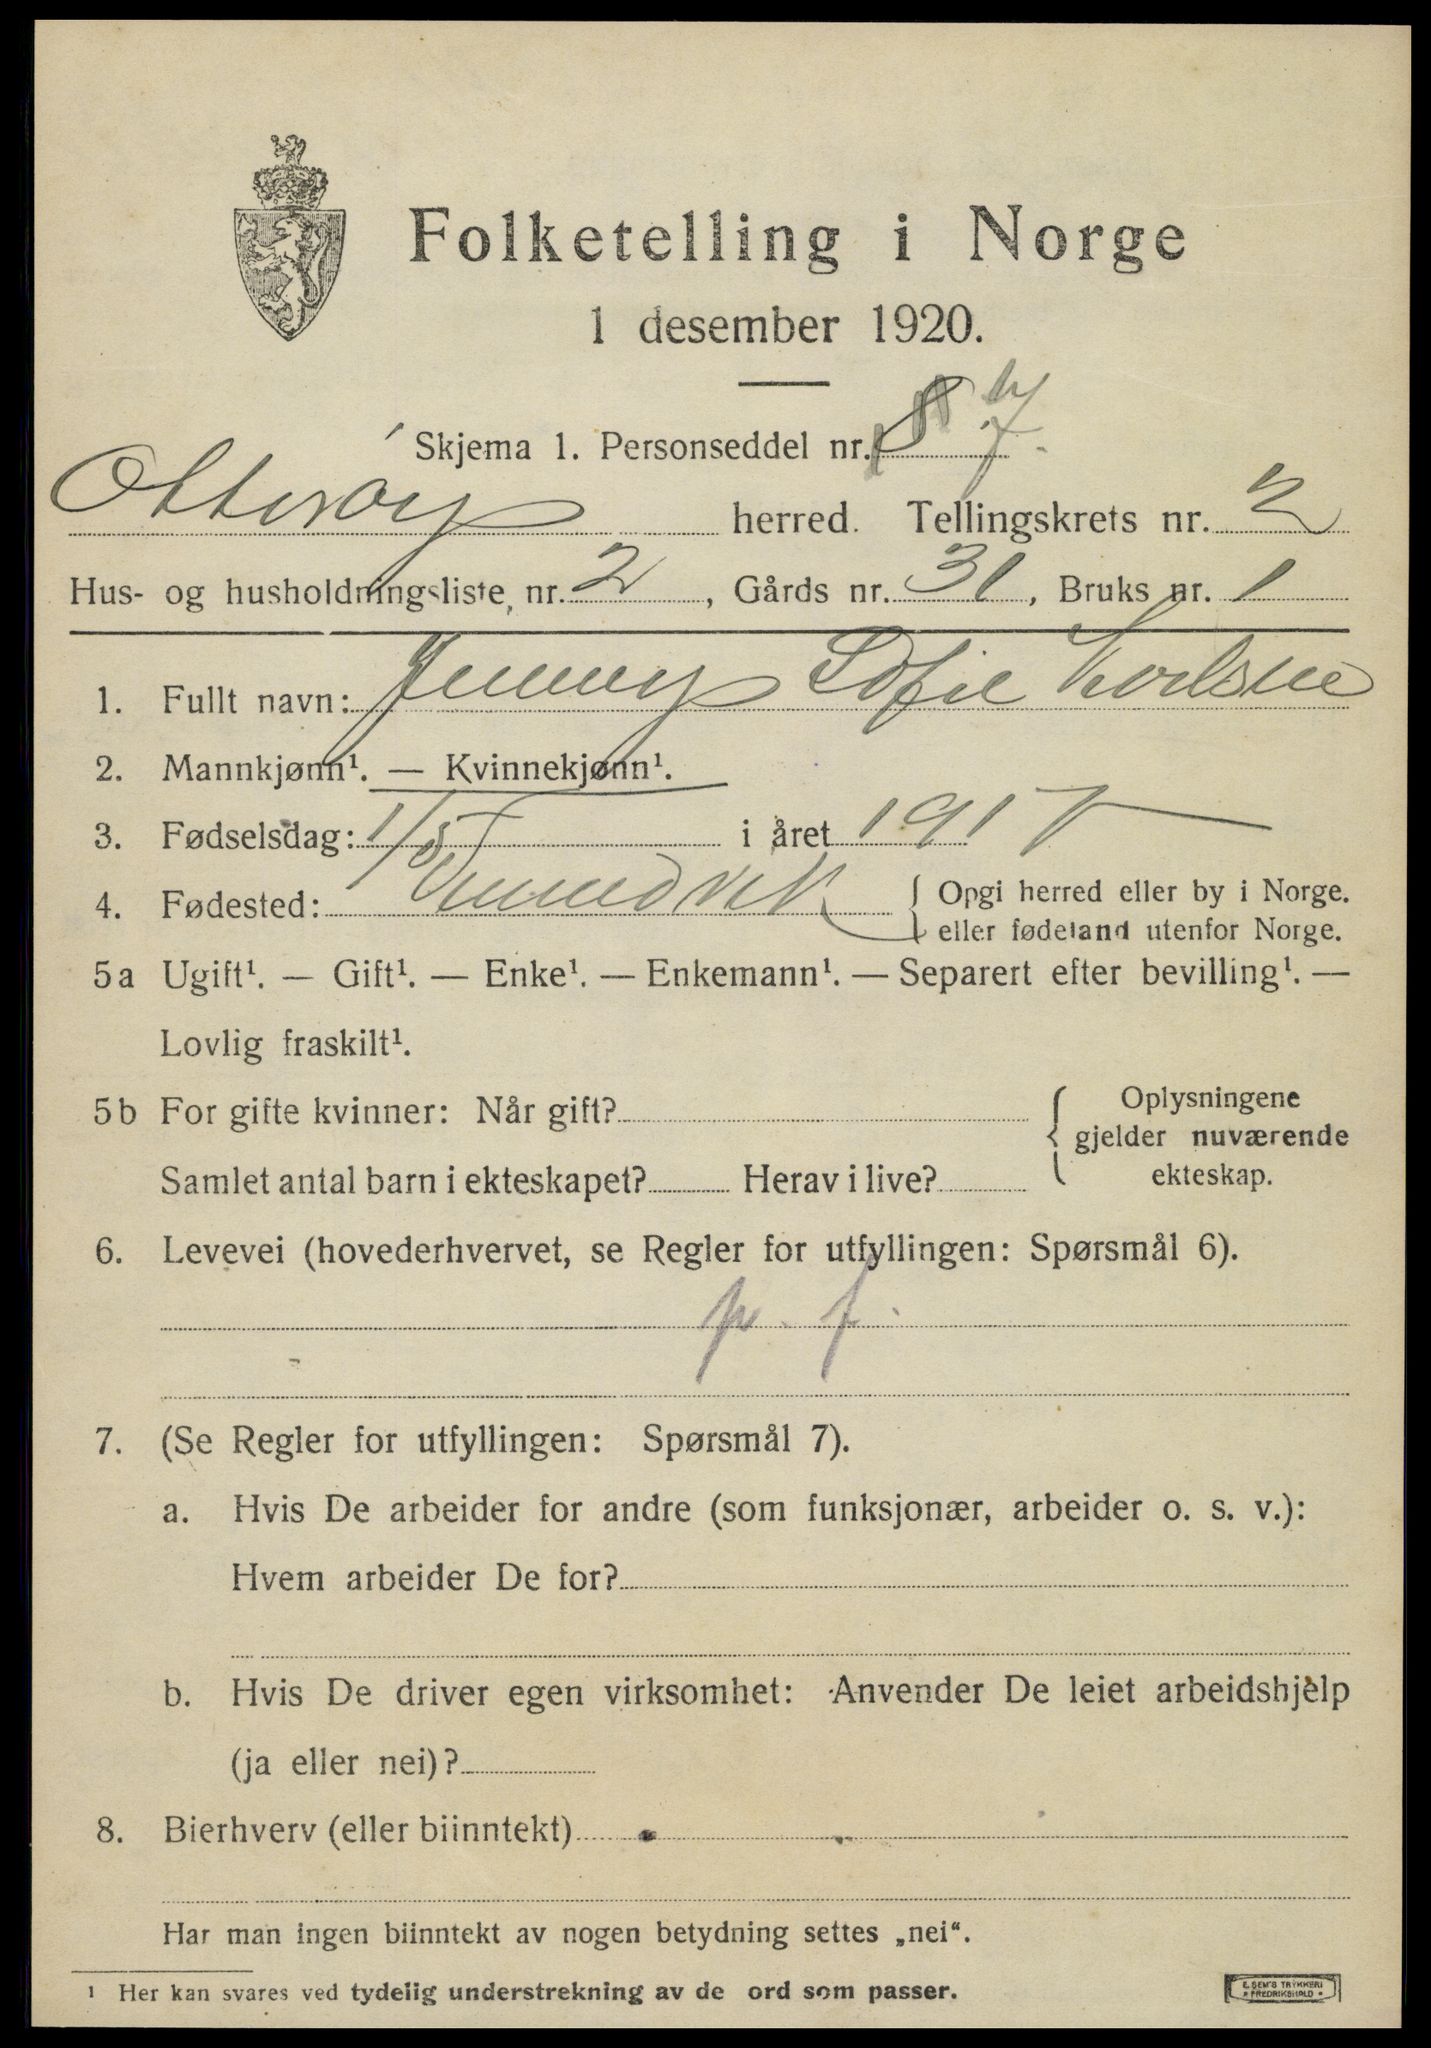 Folketelling i Norge
1 desember 1920.
Skjema 1. Personseddel nr. 8 7.
Otterøy herred. Tellingskrets nr. 2
Hus- og husholdningsliste nr. 2, Gårds nr. 31, Bruks nr. 1
1. Fullt navn: Jenny Sofie Karlsen
2. Mannkjønn¹. — Kvinnekjønn¹.
3. Fødselsdag: 1/5 i året 1917
4. Fødested: { Opgi herred eller by i Norge.
eller fødeland utenfor Norge.
5a Ugift¹. — Gift¹. — Enke¹. — Enkemann¹. — Separert efter bevilling¹. —
Lovlig fraskilt¹.
5b For gifte kvinner: Når gift?
Samlet antal barn i ekteskapet? Herav i live?
{ Oplysningene
gjelder nuværende
ekteskap.
6. Levevei (hovederhvervet, se Regler for utfyllingen: Spørsmål 6).
p. f.
7. (Se Regler for utfyllingen: Spørsmål 7).
a. Hvis De arbeider for andre (som funksjonær, arbeider o. s. v.):
Hvem arbeider De for?
b. Hvis De driver egen virksomhet: Anvender De leiet arbeidshjelp
(ja eller nei)?
8. Bierhverv (eller biinntekt)
Har man ingen biinntekt av nogen betydning settes „nei“.
¹ Her kan svares ved tydelig understrekning av de ord som passer.
E. SEM'S TRYKKERI
FREDRIKSHALD